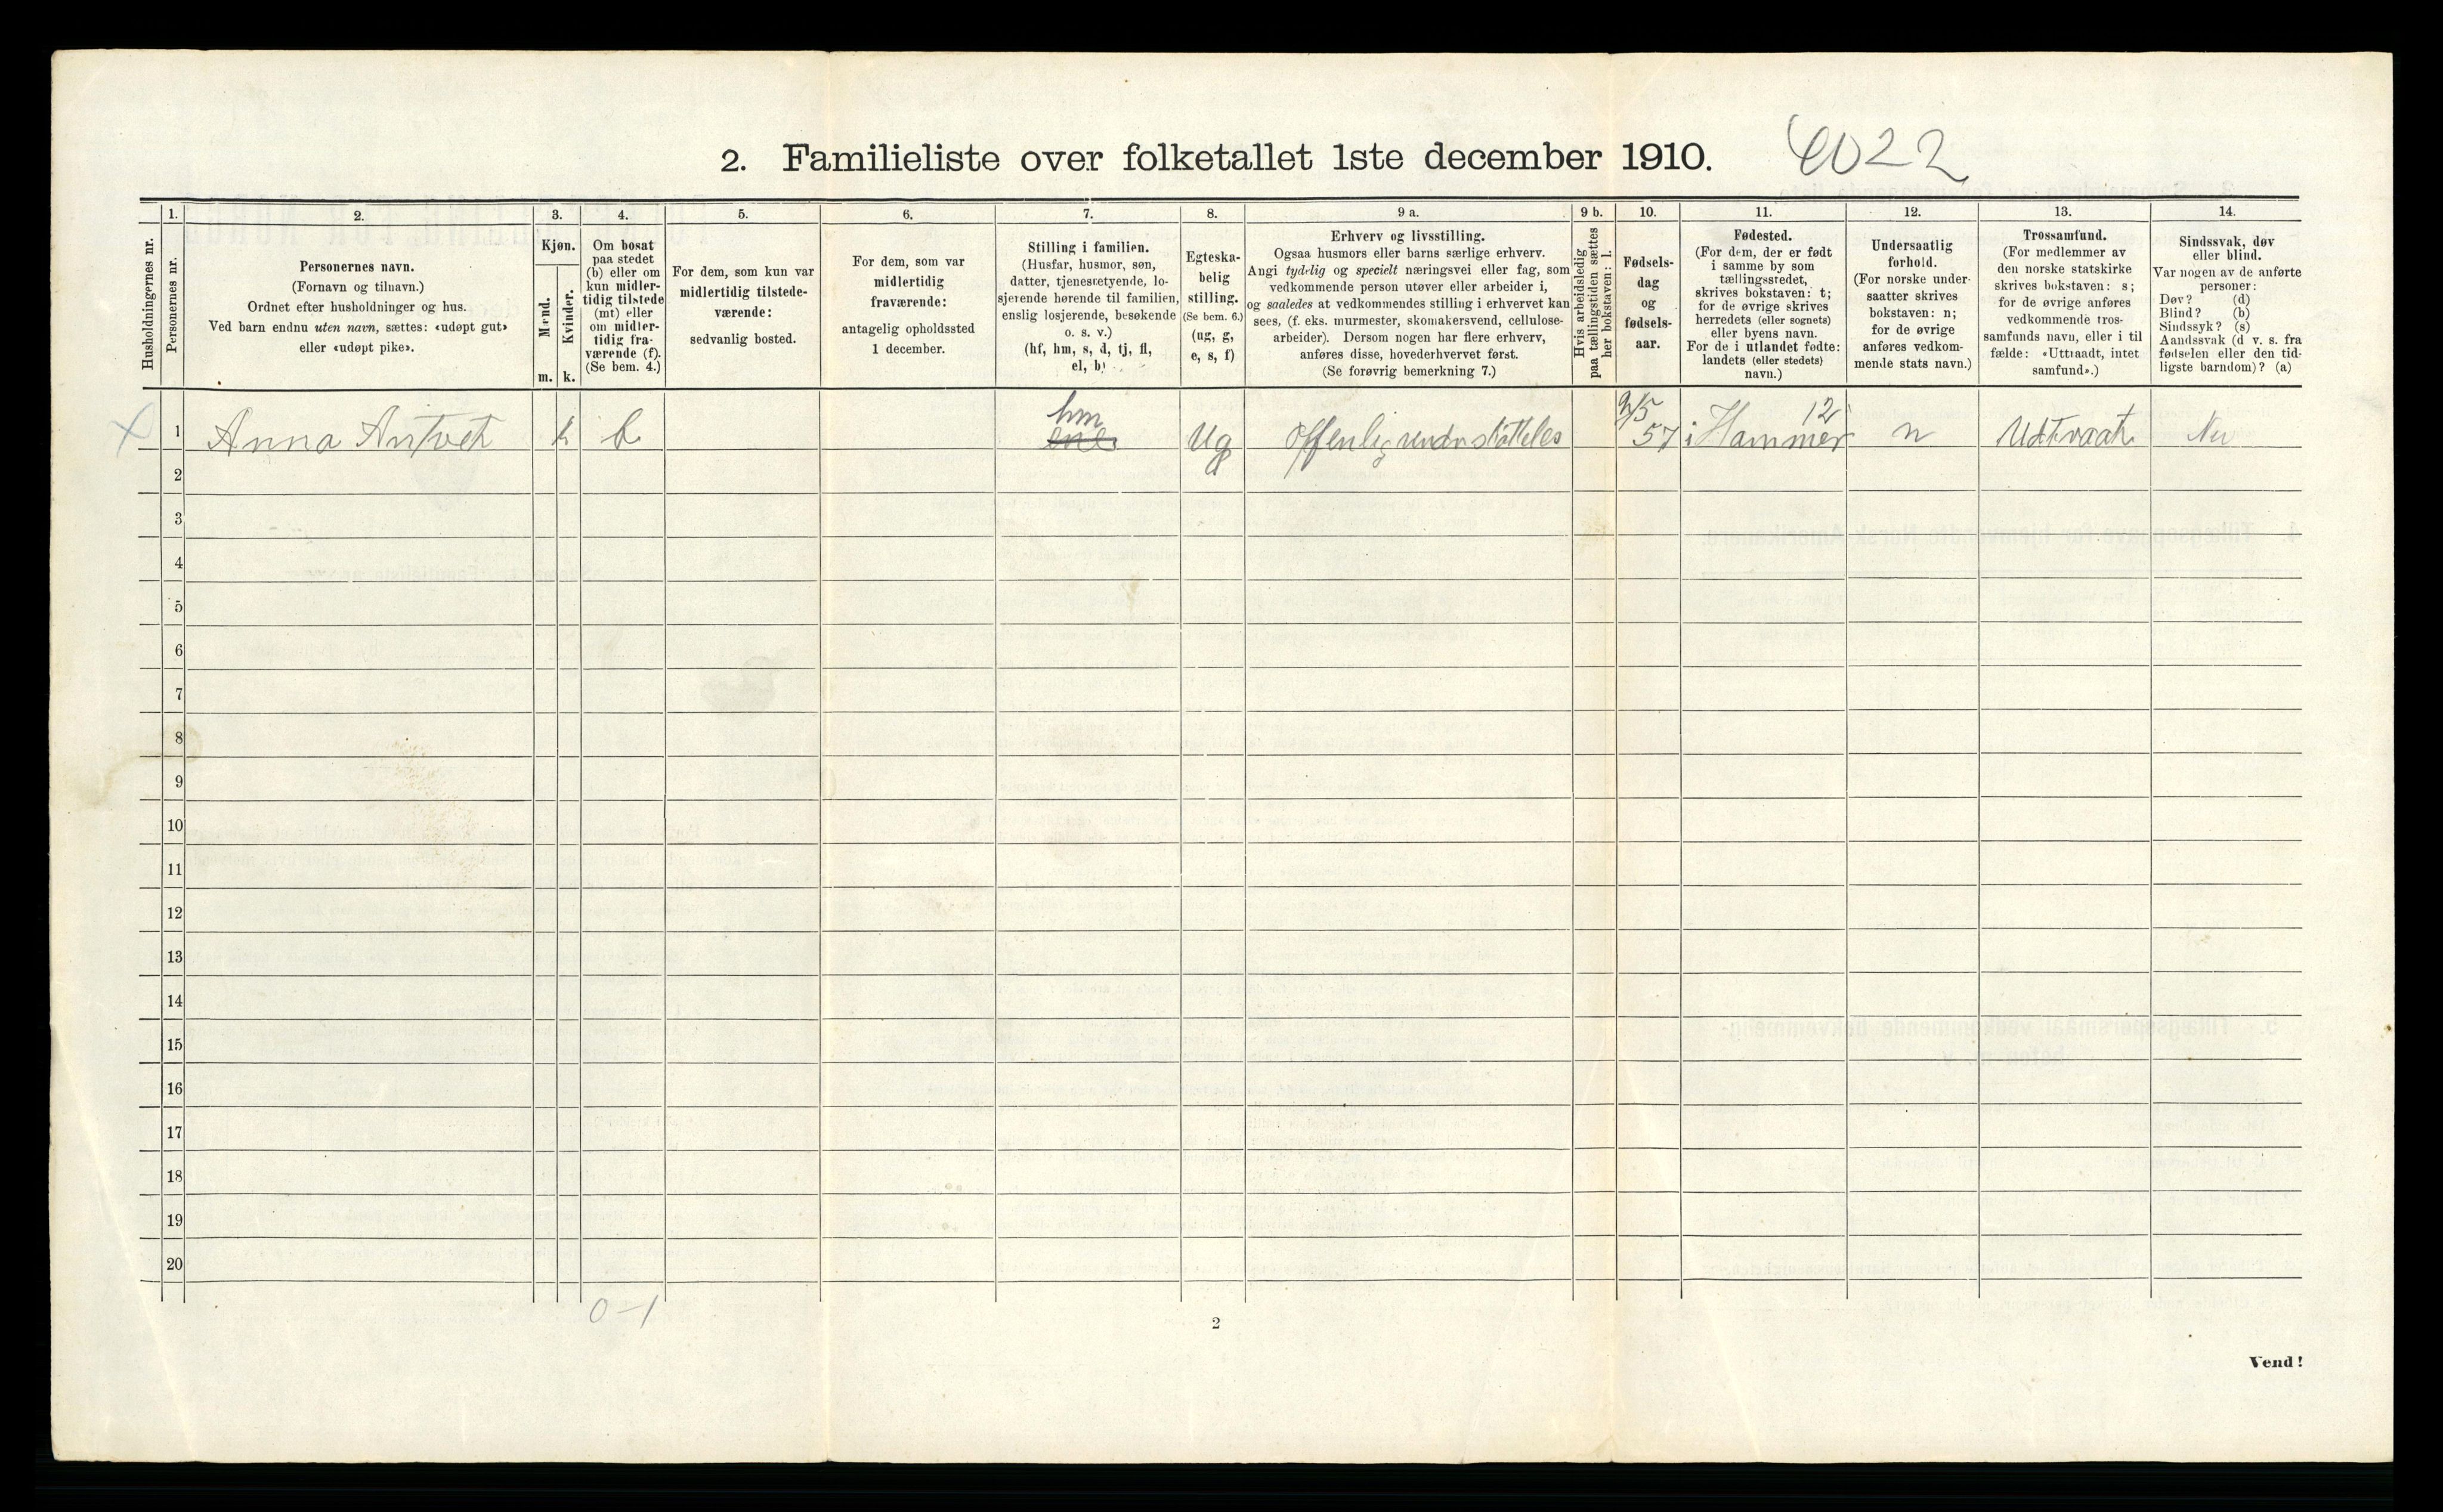 2. Familieliste over folketallet 1ste december 1910. 4022
Husholdningernes nr.
1.
Personernes nr.
2.
Personernes navn.
(Fornavn og tilnavn.)
Ordnet efter husholdninger og hus.
Ved barn endnu uten navn, sættes: «udøpt gut»
eller «udøpt pike».
3.
Kjøn.
Mænd.
Kvinder.
m. k.
4.
Om bosat
paa stedet
(b) eller om
kun midler-
tidig tilstede
(mt) eller
om midler-
tidig fra-
værende (f).
(Se bem. 4.)
5.
For dem, som kun var
midlertidig tilstede-
værende:
sedvanlig bosted.
6.
For dem, som var
midlertidig
fraværende:
antagelig opholdssted
1 december.
7.
Stilling i familien.
(Husfar, husmor, søn,
datter, tjenestetyende, lo-
sjerende hørende til familien,
enslig losjerende, besøkende
o. s. v.)
(hf, hm, s, d, tj, fl,
el, b)
8.
Egteska-
belig
stilling.
(Se bem. 6.)
(ug, g,
e, s, f)
9 a.
Erhverv og livsstilling.
Ogsaa husmors eller barns særlige erhverv.
Angi tydelig og specielt næringsvei eller fag, som
vedkommende person utøver eller arbeider i,
og saaledes at vedkommendes stilling i erhvervet kan
sees, (f. eks. murmester, skomakersvend, cellulose-
arbeider). Dersom nogen har flere erhverv,
anføres disse, hovederhvervet først.
(Se forøvrig bemerkning 7.)
9 b.
Hvis arbeidsledig
paa tællingstiden sættes
her bokstaven: l.
10.
Fødsels-
dag
og
fødsels-
aar.
11.
Fødested.
(For dem, der er født
i samme by som
tællingsstedet,
skrives bokstaven: t;
for de øvrige skrives
herredets (eller sognets)
eller byens navn.
For de i utlandet fødte:
landets (eller stedets)
navn.)
12.
Undersaatlig
forhold.
(For norske under-
saatter skrives
bokstaven: n;
for de øvrige
anføres vedkom-
mende stats navn.)
13.
Trossamfund.
(For medlemmer av
den norske statskirke
skrives bokstaven: s;
for de øvrige anføres
vedkommende tros-
samfunds navn, eller i til-
fælde: «Uttraadt, intet
samfund».)
14.
Sindssvak, døv
eller blind.
Var nogen av de anførte
personer:
Døv? (d)
Blind? (b)
Sindssyk? (s)
Aandssvak (d. v. s. fra
fødselen eller den tid-
ligste barndom)? (a)
hm 12
1 Anna k b ene Ug 57 i Hammer n
2
3
4
5
6
7
8
9
10
11
12
13
14
15
16
17
18
19
20
0-1
2
Vend!